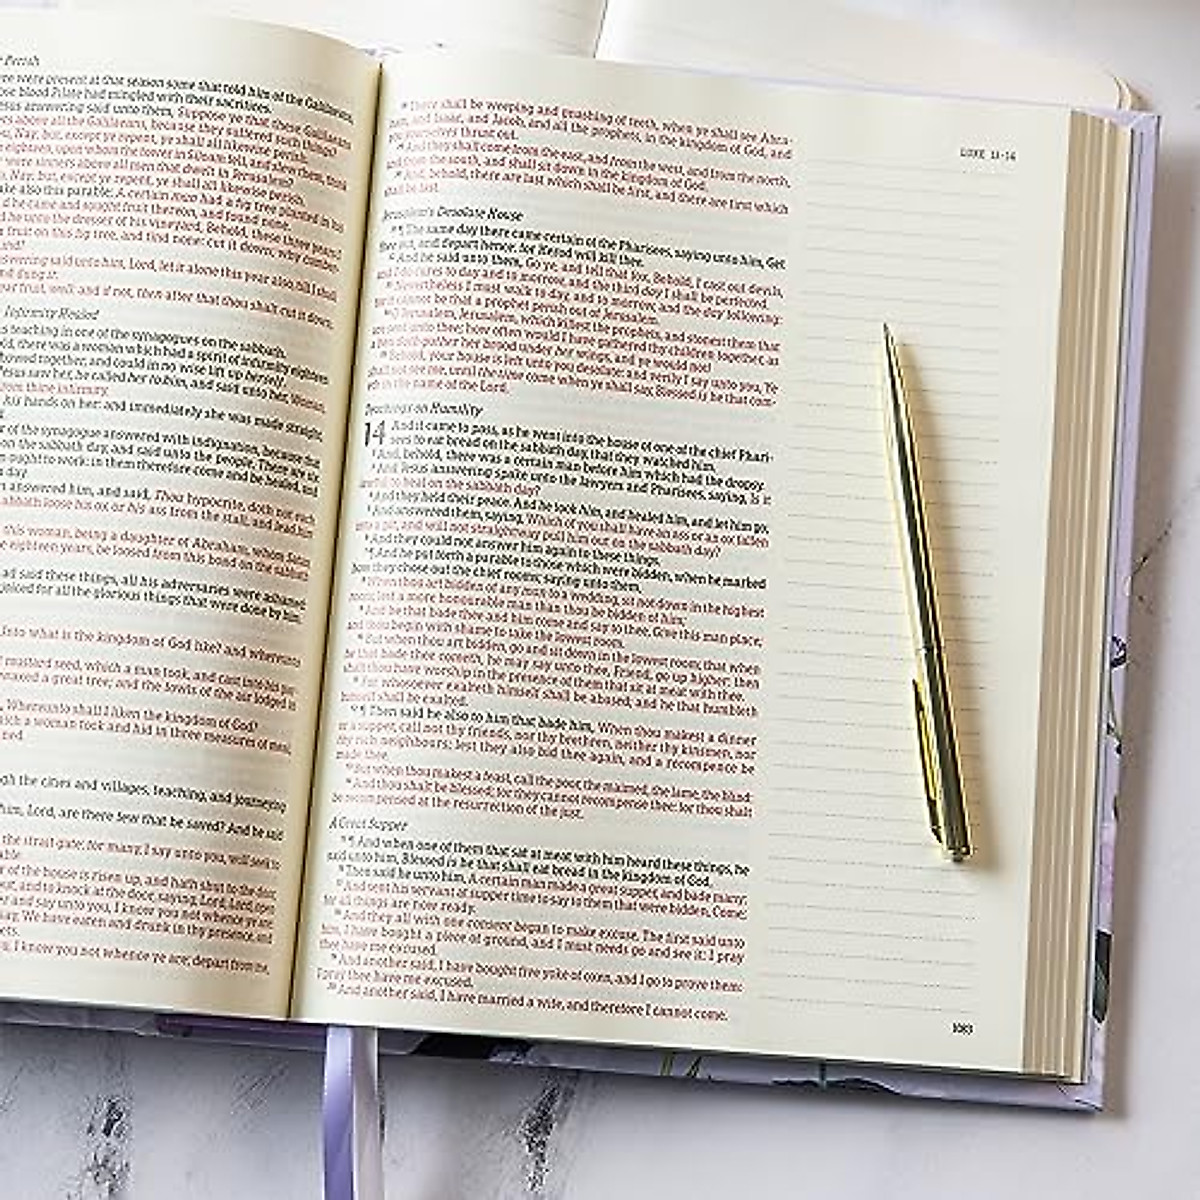 Perish
re were present at that season some that told him of the Galilaeans,
ose blood Pilate had mingled with their sacrifices.
esus answering said unto them, Suppose ye that these Galilaeans
ers above all the Galilaeans, because they suffered such things?
ou, Nay: but, except ye repent, ye shall all likewise perish.
eighteen, upon whom the tower in Siloam fell, and slew them, think
were sinners above all men that dwelt in Jerusalem?
, Nay: but, except ye repent, ye shall all likewise perish.
ake also this parable; A certain man had a fig tree planted in his
d he came and sought fruit thereon, and found none.
d he unto the dresser of his vineyard, Behold, these three years I
fruit on this fig tree, and find none: cut it down; why cumber
und?
swering said unto him, Lord, let it alone this year also, till I shall
nd dung it:
ear fruit, well: and if not, then after that thou shalt cut it down.
Infirmity Healed
s teaching in one of the synagogues on the sabbath.
old, there was a woman which had a spirit of infirmity eighteen
bowed together, and could in no wise lift up herself.
esus saw her, he called her to him, and said unto her, Woman,
from thine infirmity.
his hands on her: and immediately she was made straight,
r of the synagogue answered with indignation, because that
on the sabbath day, and said unto the people, There are six
n ought to work: in them therefore come and be healed, and
day.
n answered him, and said, Thou hypocrite, doth not each
abbath loose his ox or his ass from the stall, and lead him
this woman, being a daughter of Abraham, whom Satan
e eighteen years, be loosed from this bond on the sabbath
ad said these things, all his adversaries were ashamed:
joiced for all the glorious things that were done by him.
Unto what is the kingdom of God like? and whereunto
mustard seed, which a man took, and cast into his gar-
waxed a great tree; and the fowls of the air lodged in
, Whereunto shall I liken the kingdom of God?
ich a woman took and hid in three measures of meal,
ned.
ugh the cities and villages, teaching, and journeying
him, Lord, are there few that be saved? And he said
the strait gate: for many, I say unto you, will seek to
able.
r of the house is risen up, and hath shut to the door,
out, and to knock at the door, saying, Lord, Lord, open
er and say unto you, I know you not whence ye are:
say, We have eaten and drunk in thy presence, and
ets.
u, I know you not whence ye are; depart from me,
LUKE 13-14
28 There shall be weeping and gnashing of teeth, when ye shall see Abra-
ham, and Isaac, and Jacob, and all the prophets, in the kingdom of God, and
you yourselves thrust out.
29 And they shall come from the east, and from the west, and from the north,
and from the south, and shall sit down in the kingdom of God.
30 And, behold, there are last which shall be first, and there are first which
shall be last.
Jerusalem's Desolate House
31 ¶ The same day there came certain of the Pharisees, saying unto him, Get
thee out, and depart hence: for Herod will kill thee.
32 And he said unto them, Go ye, and tell that fox, Behold, I cast out devils,
and I do cures to day and to morrow, and the third day I shall be perfected.
33 Nevertheless I must walk to day, and to morrow, and the day following:
for it cannot be that a prophet perish out of Jerusalem.
34 O Jerusalem, Jerusalem, which killest the prophets, and stonest them that
are sent unto thee; how often would I have gathered thy children together, as
a hen doth gather her brood under her wings, and ye would not!
35 Behold, your house is left unto you desolate: and verily I say unto you, Ye
shall not see me, until the time come when ye shall say, Blessed is he that com-
eth in the name of the Lord.
Teachings on Humility
14 And it came to pass, as he went into the house of one of the chief Phari-
sees to eat bread on the sabbath day, that they watched him.
2 And, behold, there was a certain man before him which had the dropsy.
3 And Jesus answering spake unto the lawyers and Pharisees, saying, Is it
lawful to heal on the sabbath day?
4 And they held their peace. And he took him, and healed him, and let him go;
5 And answered them, saying, Which of you shall have an ass or an ox fallen
into a pit, and will not straightway pull him out on the sabbath day?
6 And they could not answer him again to these things.
7 ¶ And he put forth a parable to those which were bidden, when he marked
how they chose out the chief rooms; saying unto them,
8 When thou art bidden of any man to a wedding, sit not down in the highest
room; lest a more honourable man than thou be bidden of him;
9 And he that bade thee and him come and say to thee, Give this man place;
and thou begin with shame to take the lowest room.
10 But when thou art bidden, go and sit down in the lowest room; that when
he that bade thee cometh, he may say unto thee, Friend, go up higher: then
shalt thou have worship in the presence of them that sit at meat with thee.
11 For whosoever exalteth himself shall be abased; and he that humbleth
himself shall be exalted.
12 ¶ Then said he also to him that bade him, When thou makest a dinner
or a supper, call not thy friends, nor thy brethren, neither thy kinsmen, nor
thy rich neighbours; lest they also bid thee again, and a recompence be
made thee.
13 But when thou makest a feast, call the poor, the maimed, the lame, the blind:
14 And thou shalt be blessed; for they cannot recompense thee: for thou shalt
be recompensed at the resurrection of the just.
A Great Supper
15 ¶ And when one of them that sat at meat with him heard these things, he
said unto him, Blessed is he that shall eat bread in the kingdom of God.
16 Then said he unto him, A certain man made a great supper, and bade many:
17 And sent his servant at supper time to say to them that were bidden, Come;
for all things are now ready.
18 And they all with one consent began to make excuse. The first said unto
him, I have bought a piece of ground, and I must needs go and see it: I pray
thee have me excused.
19 And another said, I have bought five yoke of oxen, and I go to prove them:
I pray thee have me excused.
20 And another said, I have married a wife, and therefore I cannot come.
1083